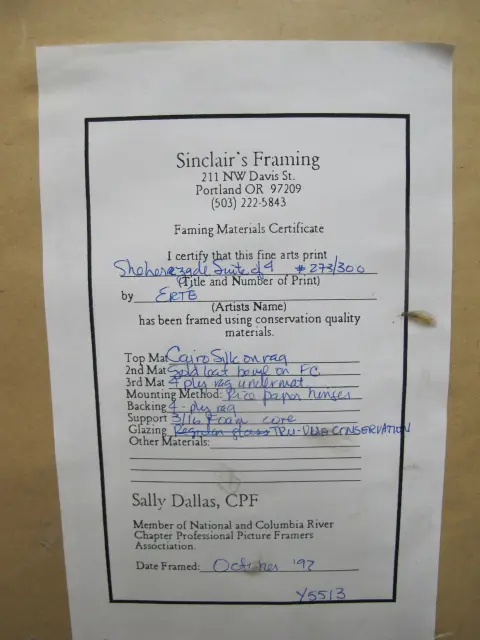 Sinclair's Framing
211 NW Davis St.
Portland OR 97209
(503) 222-5843
Faming Materials Certificate
I certify that this fine arts print
Sheherazade Suite of 4 #273/300
(Title and Number of Print)
by ERTÉ
(Artists Name)
has been framed using conservation quality
materials.
Top Mat Cairo Silk on rag
2nd Mat Gold leaf bevel on F.C.
3rd Mat 4 ply rag undermat
Mounting Method: Rice paper hinges
Backing 4-ply rag
Support 3/16 Foam core
Glazing Regular glass TRU-VUE CONSERVATION
Other Materials:
Sally Dallas, CPF
Member of National and Columbia River
Chapter Professional Picture Framers
Association.
Date Framed: October '92
Y5513